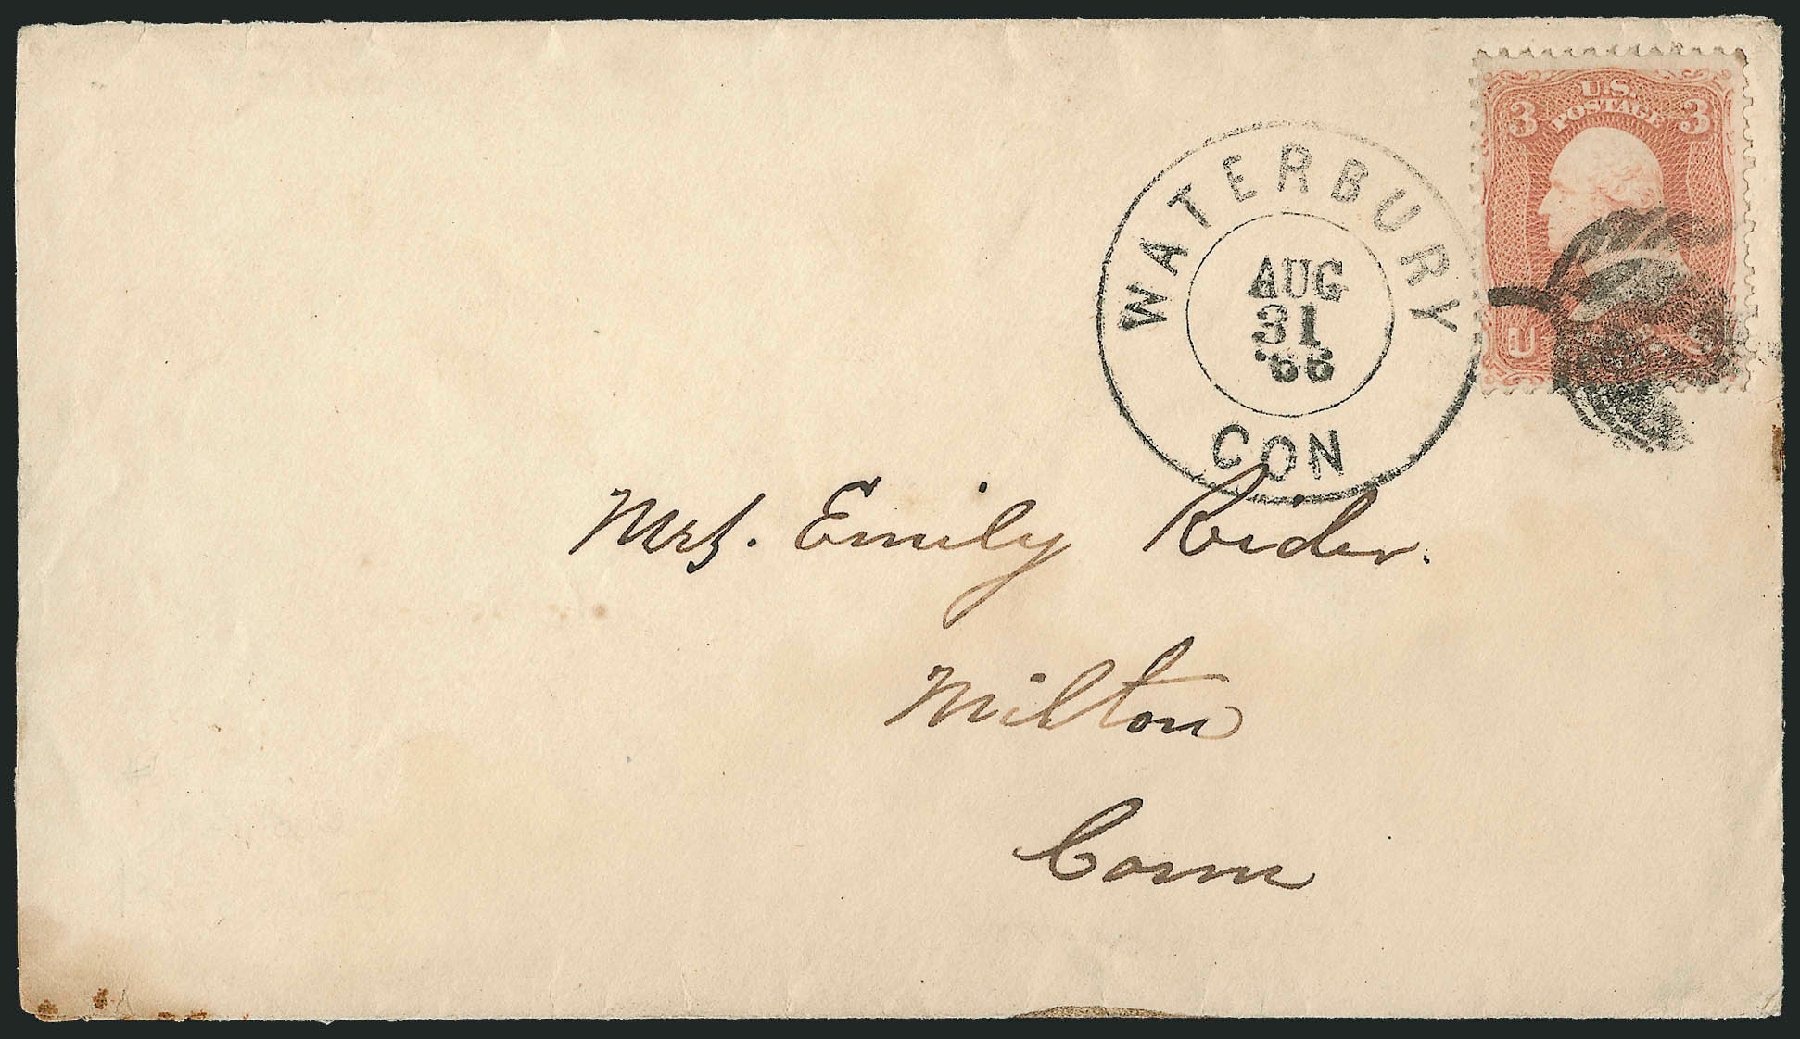 U.S.
POSTAGE
3 3
WATERBURY
AUG
31
'66
CON
U S
Mrs. Emily Rider.
Milton
Conn